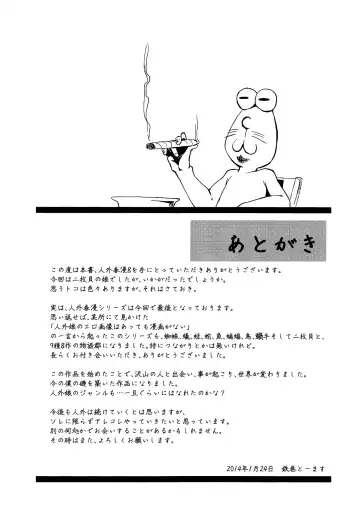 あとがき
この度は本書、人外春漫8を手にとっていただきありがとうございます。
今回は二枚貝の娘でしたが、いかがだったでしょうか。
思うトコは色々ありますが、それはさておき。
実は、人外春漫シリーズは今回で最後となっております。
思い返せば、某所にて見かけた
「人外娘のエロ画像はあっても漫画がない」
の一言から起ったこのシリーズも、蜘蛛、蟻、蛙、蛇、魚、蝙蝠、鳥、蝸牛そして二枚貝と、
9種8作の物語郡になりました。特につながりとかは無いけれど。
長らくお付き合いいただき、ありがとうございました。
この作品を始めたことで、沢山の人と出会い、事が起こり、世界が変わりました。
今の僕の礎を築いた作品になりました。
人外娘のジャンルも……一瓦ぐらいにはなれたのかな?
今後も人外は続けていくとは思いますが、
ソレに限らずアレコレやっていきたいと思っています。
別の何処かでお会いすることがあるかもしれません。
その時はまた、よろしくお願いします。
2014年1月24日 鉄巻とーます